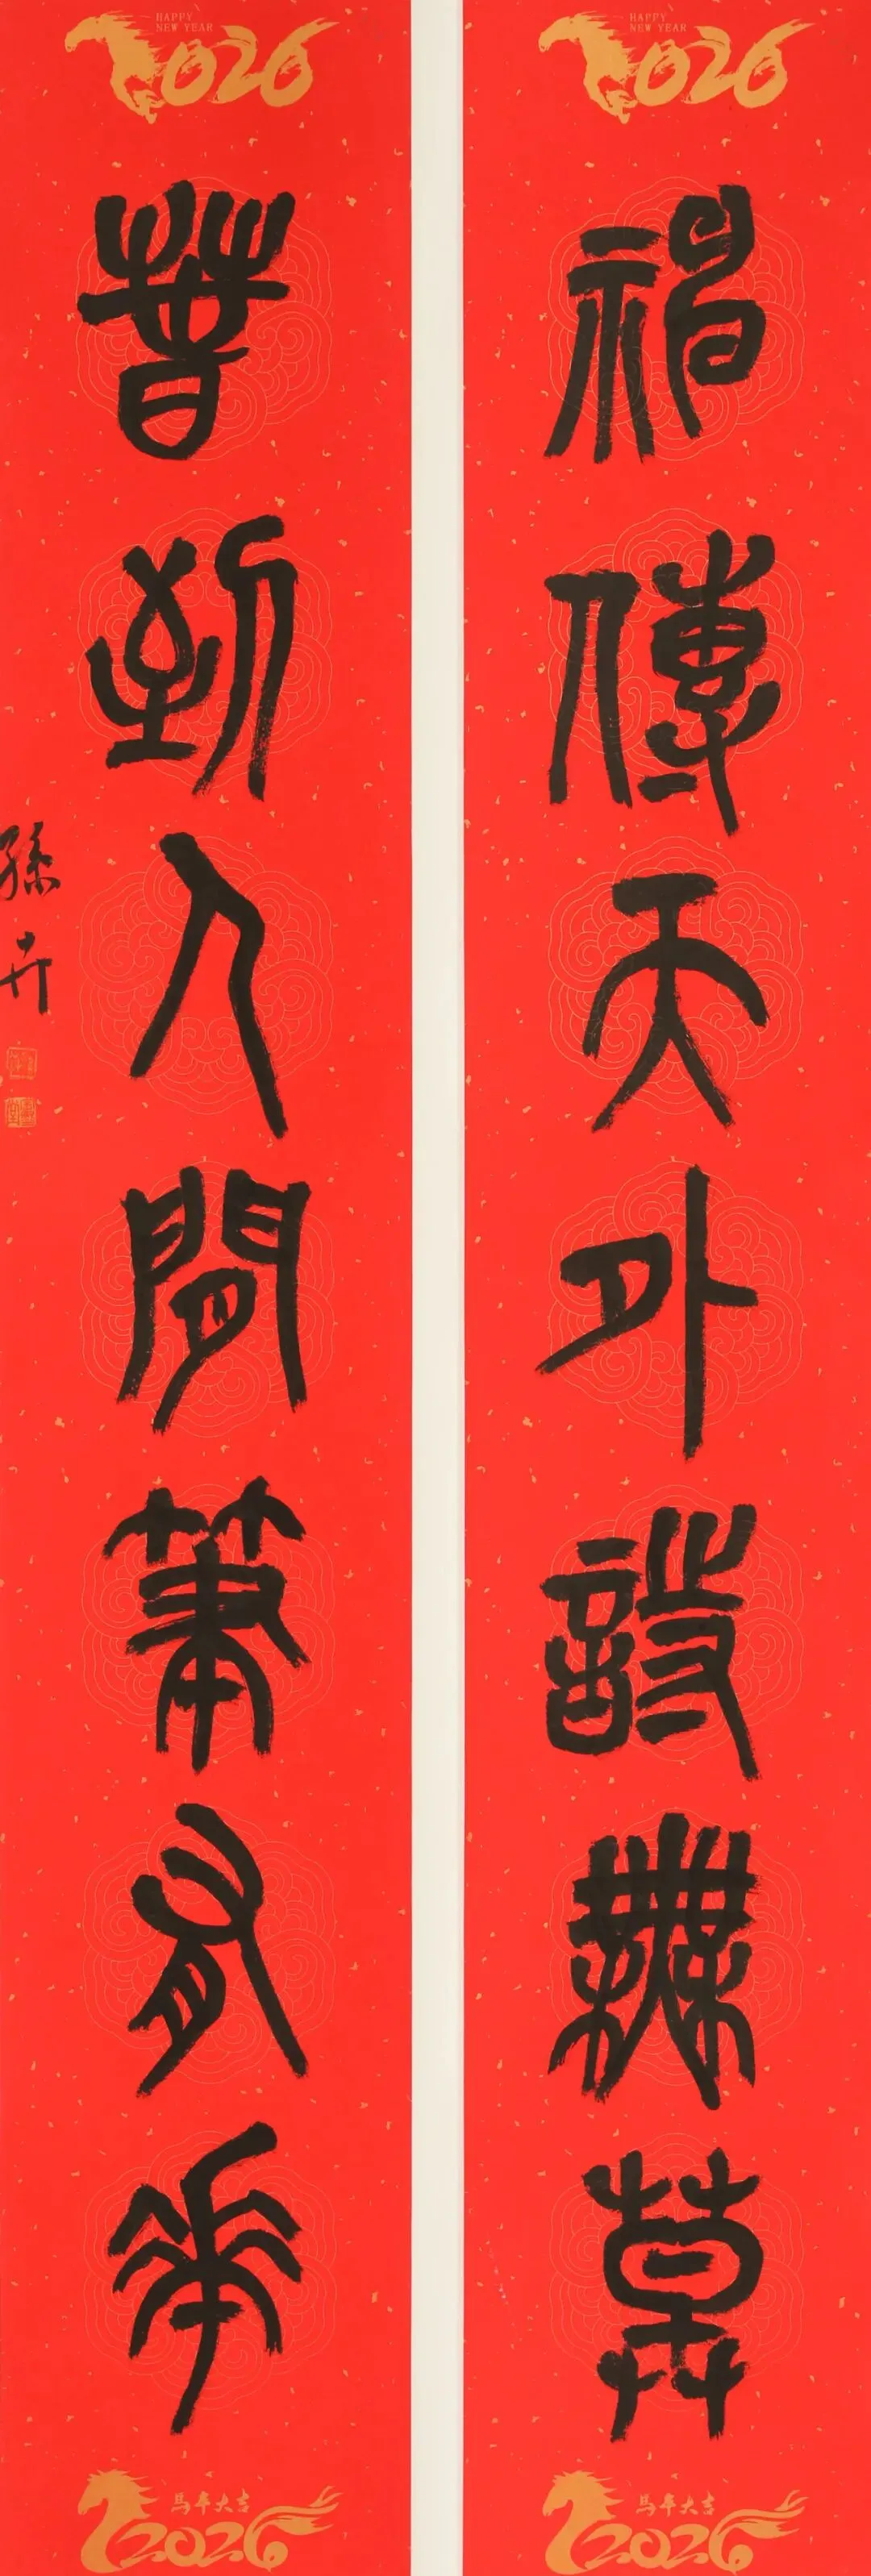 HAPPY
NEW YEAR
2026
神傳天外詩無草
馬年大吉
2026
HAPPY
NEW YEAR
2026
春到人間筆有華
孫卉
馬年大吉
2026